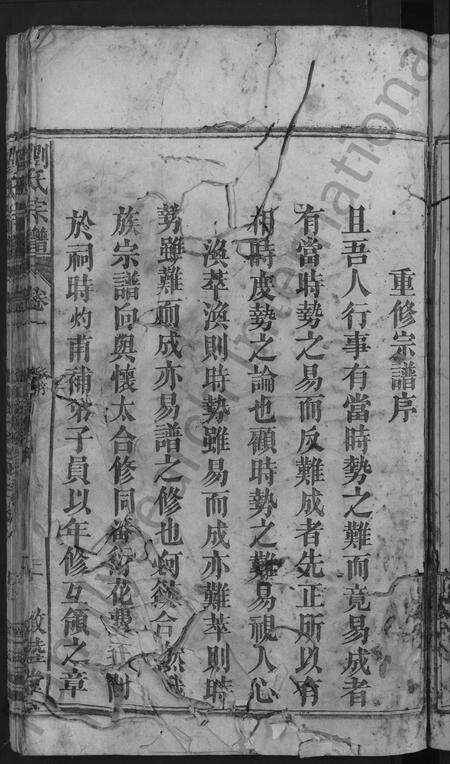 重修宗譜序
且吾人行事有當時勢之難而竟易成者
有當時勢之易而反難成者先正所以有
相時度勢之論也顧時勢之難易視人心
渙萃渙則時勢雖易而成亦難萃則時
勢雖難而成亦易譜之修也何獨
族宗譜向與懷太合修同
於祠時灼甫補弟子員以年修互領之章
劉氏宗譜
卷一
敦